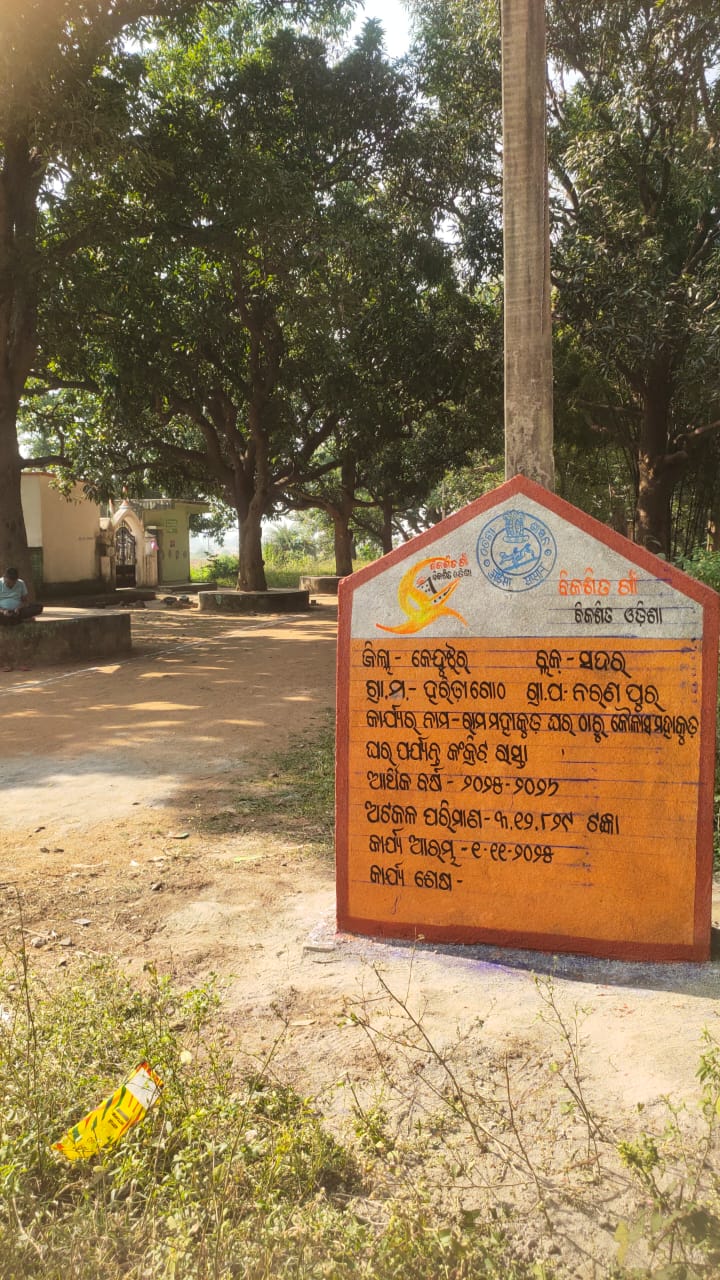 ବିକଶିତ ଗାଁ
ବିକଶିତ ଓଡ଼ିଶା
ବିକଶିତ ଗାଁ
ବିକଶିତ ଓଡ଼ିଶା
ଜିଲ୍ଲା - କେନ୍ଦୁଝର ବ୍ଲକ - ସଦର
ଗ୍ରା.ମ.- ହରିଡ଼ାଗୋଠ ଗ୍ରା.ପ- ନରଣପୁର
କାର୍ଯ୍ୟର ନାମ - ରାମ ମହାକୁଡ ଘର ଠାରୁ କୈଳାସ ମହାକୁଡ
ଘର ପର୍ଯ୍ୟନ୍ତ କଂକ୍ରିଟ ରାସ୍ତା
ଆର୍ଥିକ ବର୍ଷ - ୨୦୨୫-୨୦୨୬
ଅଟକଳ ପରିମାଣ - ୩,୧୨,୮୨୯ ଟଙ୍କା
କାର୍ଯ୍ୟ ଆରମ୍ଭ - ୧-୧୧-୨୦୨୫
କାର୍ଯ୍ୟ ଶେଷ -